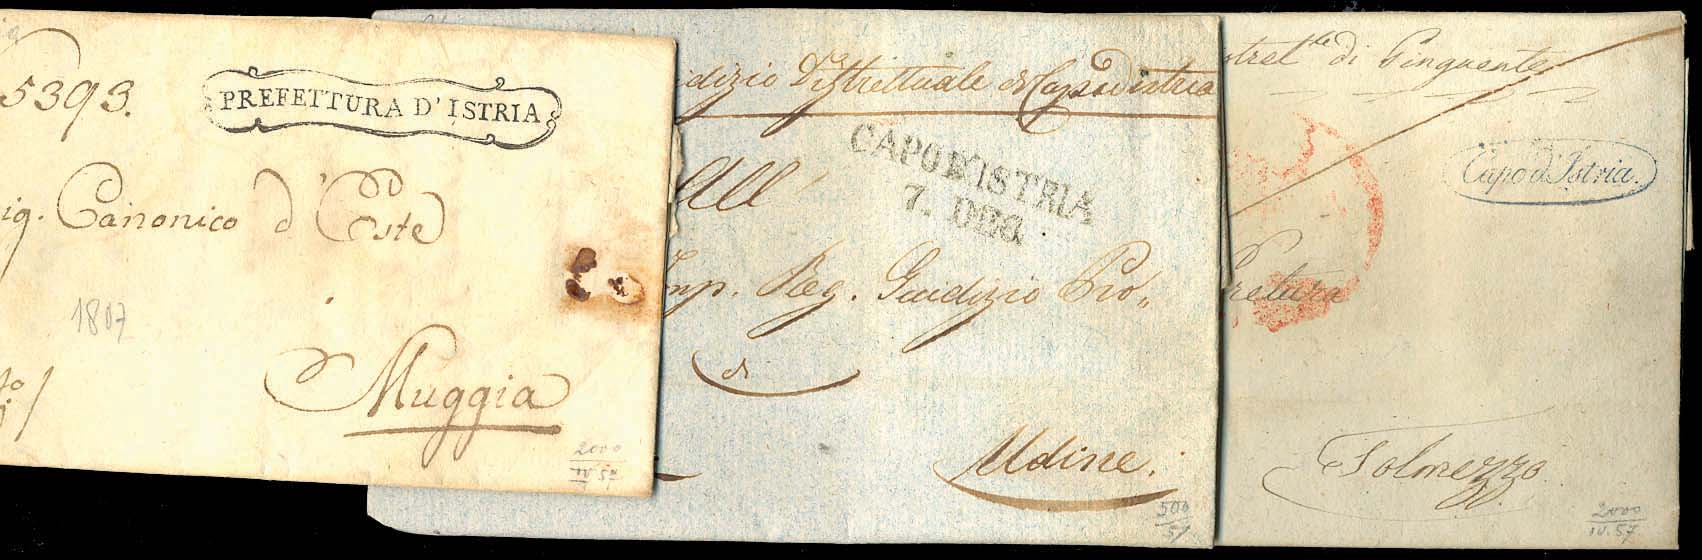 5393.
PREFETTURA D'ISTRIA
ig. Canonico d'Este
1807
Muggia
2000
IV.57
dizio Distrettuale di Capodistria
CAPO D'ISTRIA
7. DEC
All
Imp. Reg. Giudizio Pro„
di
Udine.
500
stret.le di Pinguente
Capo d'Istria.
Pretura
Tolmezzo
2000
IV.57